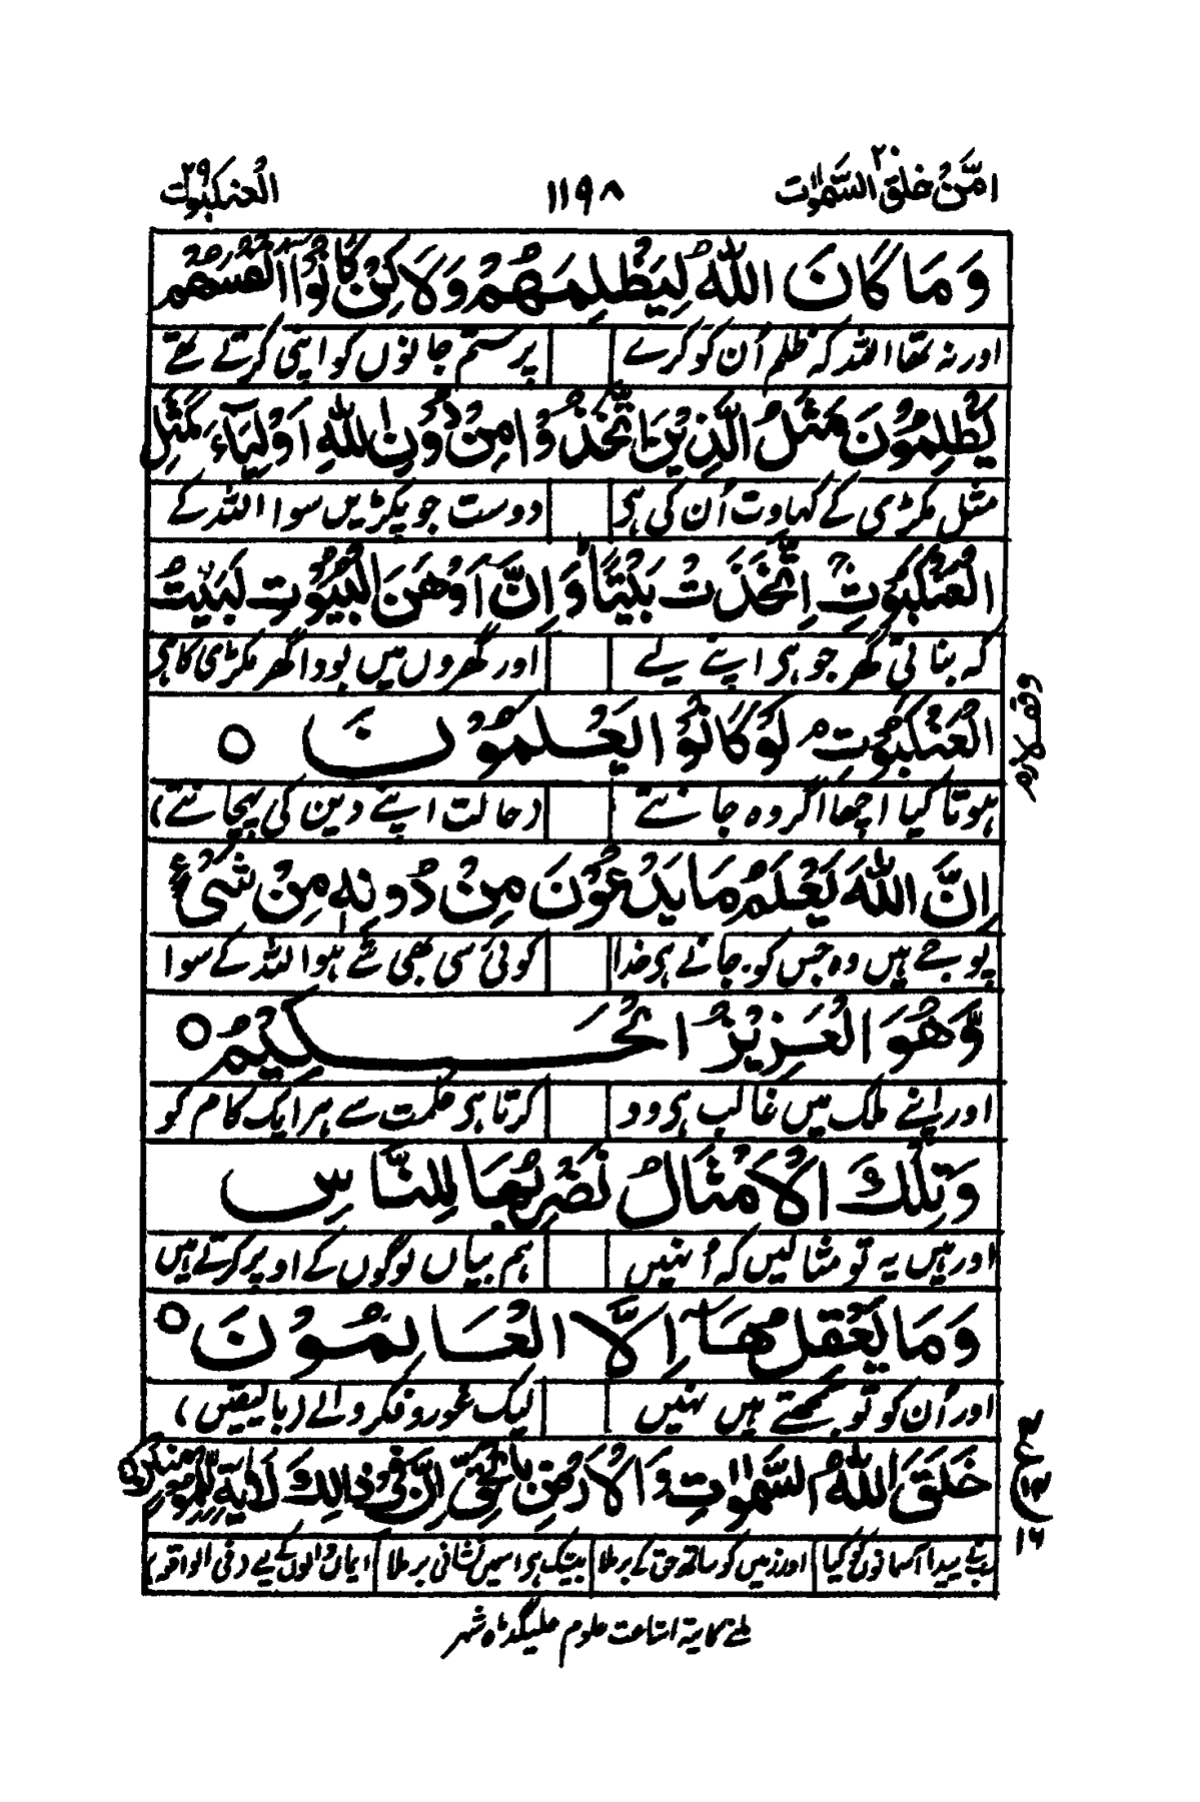 امّن خلق السّمٰوٰت ۲۰ ۱۱۹۸ العنکبوت ۲۹
وَمَا كَانَ اللّٰهُ لِيَظْلِمَهُمْ وَلَاكِنْ كَانُوْا اَنْفُسَهُمْ
اور نہ تھا اللہ کہ ظلم اُن کو کرے پر ستم جانوں کو اپنی کرتے تھے
يَظْلِمُوْنَ مَثَلُ الَّذِيْنَ اتَّخَذُوْا مِنْ دُوْنِ اللّٰهِ اَوْلِيَآءَ كَمَثَلِ
مثل مکڑی کے کہاوت اُن کی ہی دوست جو پکڑیں سوا اللہ کے
الْعَنْكَبُوْتِ اِتَّخَذَتْ بَيْتًا وَاِنَّ اَوْهَنَ الْبُيُوْتِ لَبَيْتُ
کہ بناتی گھر جو ہی اپنے لیے اور گھروں میں بودا گھر مکڑی کا ہی
الْعَنْكَبُوْتِ م لَوْ كَانُوْا يَعْلَمُوْنَ ○
ہوتا کیا اچھا اگر وہ جانتے (حالت اپنے دین کی پہچانتے)
وقف لازم
اِنَّ اللّٰهَ يَعْلَمُ مَا يَدْعُوْنَ مِنْ دُوْنِهٖ مِنْ شَیْءٍ
پوجتے ہیں وہ جس کو جانے ہی خدا کوئی سی بھی شے ہو اللہ کے سوا
وَّهُوَ الْعَزِيْزُ الْحَكِيْمُ ○
اور اپنے ملک میں غالب ہی وہ کرتا ہی حکمت سے ہر ایک کام کو
وَتِلْكَ الْاَمْثَالُ نَضْرِبُهَا لِلنَّاسِ
اور ہیں یہ تو مثالیں کہ اُنہیں ہم بیاں لوگوں کے اوپر کرتے ہیں
وَمَا يَعْقِلُهَا اِلَّا الْعَالِمُوْنَ ○
اور اُن کو تو سمجھتے ہیں نہیں لیک غور و فکر والے (بالیقیں)
خَلَقَ اللّٰهُ السَّمٰوٰتِ وَالْاَرْضَ بِالْحَقِّ اِنَّ فِیْ ذٰالِكَ لَاٰيَةً لِّلْمُؤْمِنِيْنَ ○
ع ۱۴ ۱۶
پیدا آسمانوں کو کیا اور زمیں کو ساتھ حق کے برملا بیشک ہی اسمیں نشانی برملا ایماں والوں کے لیے
ملنے کا پتہ اشاعت علوم علیگڈھ شہر